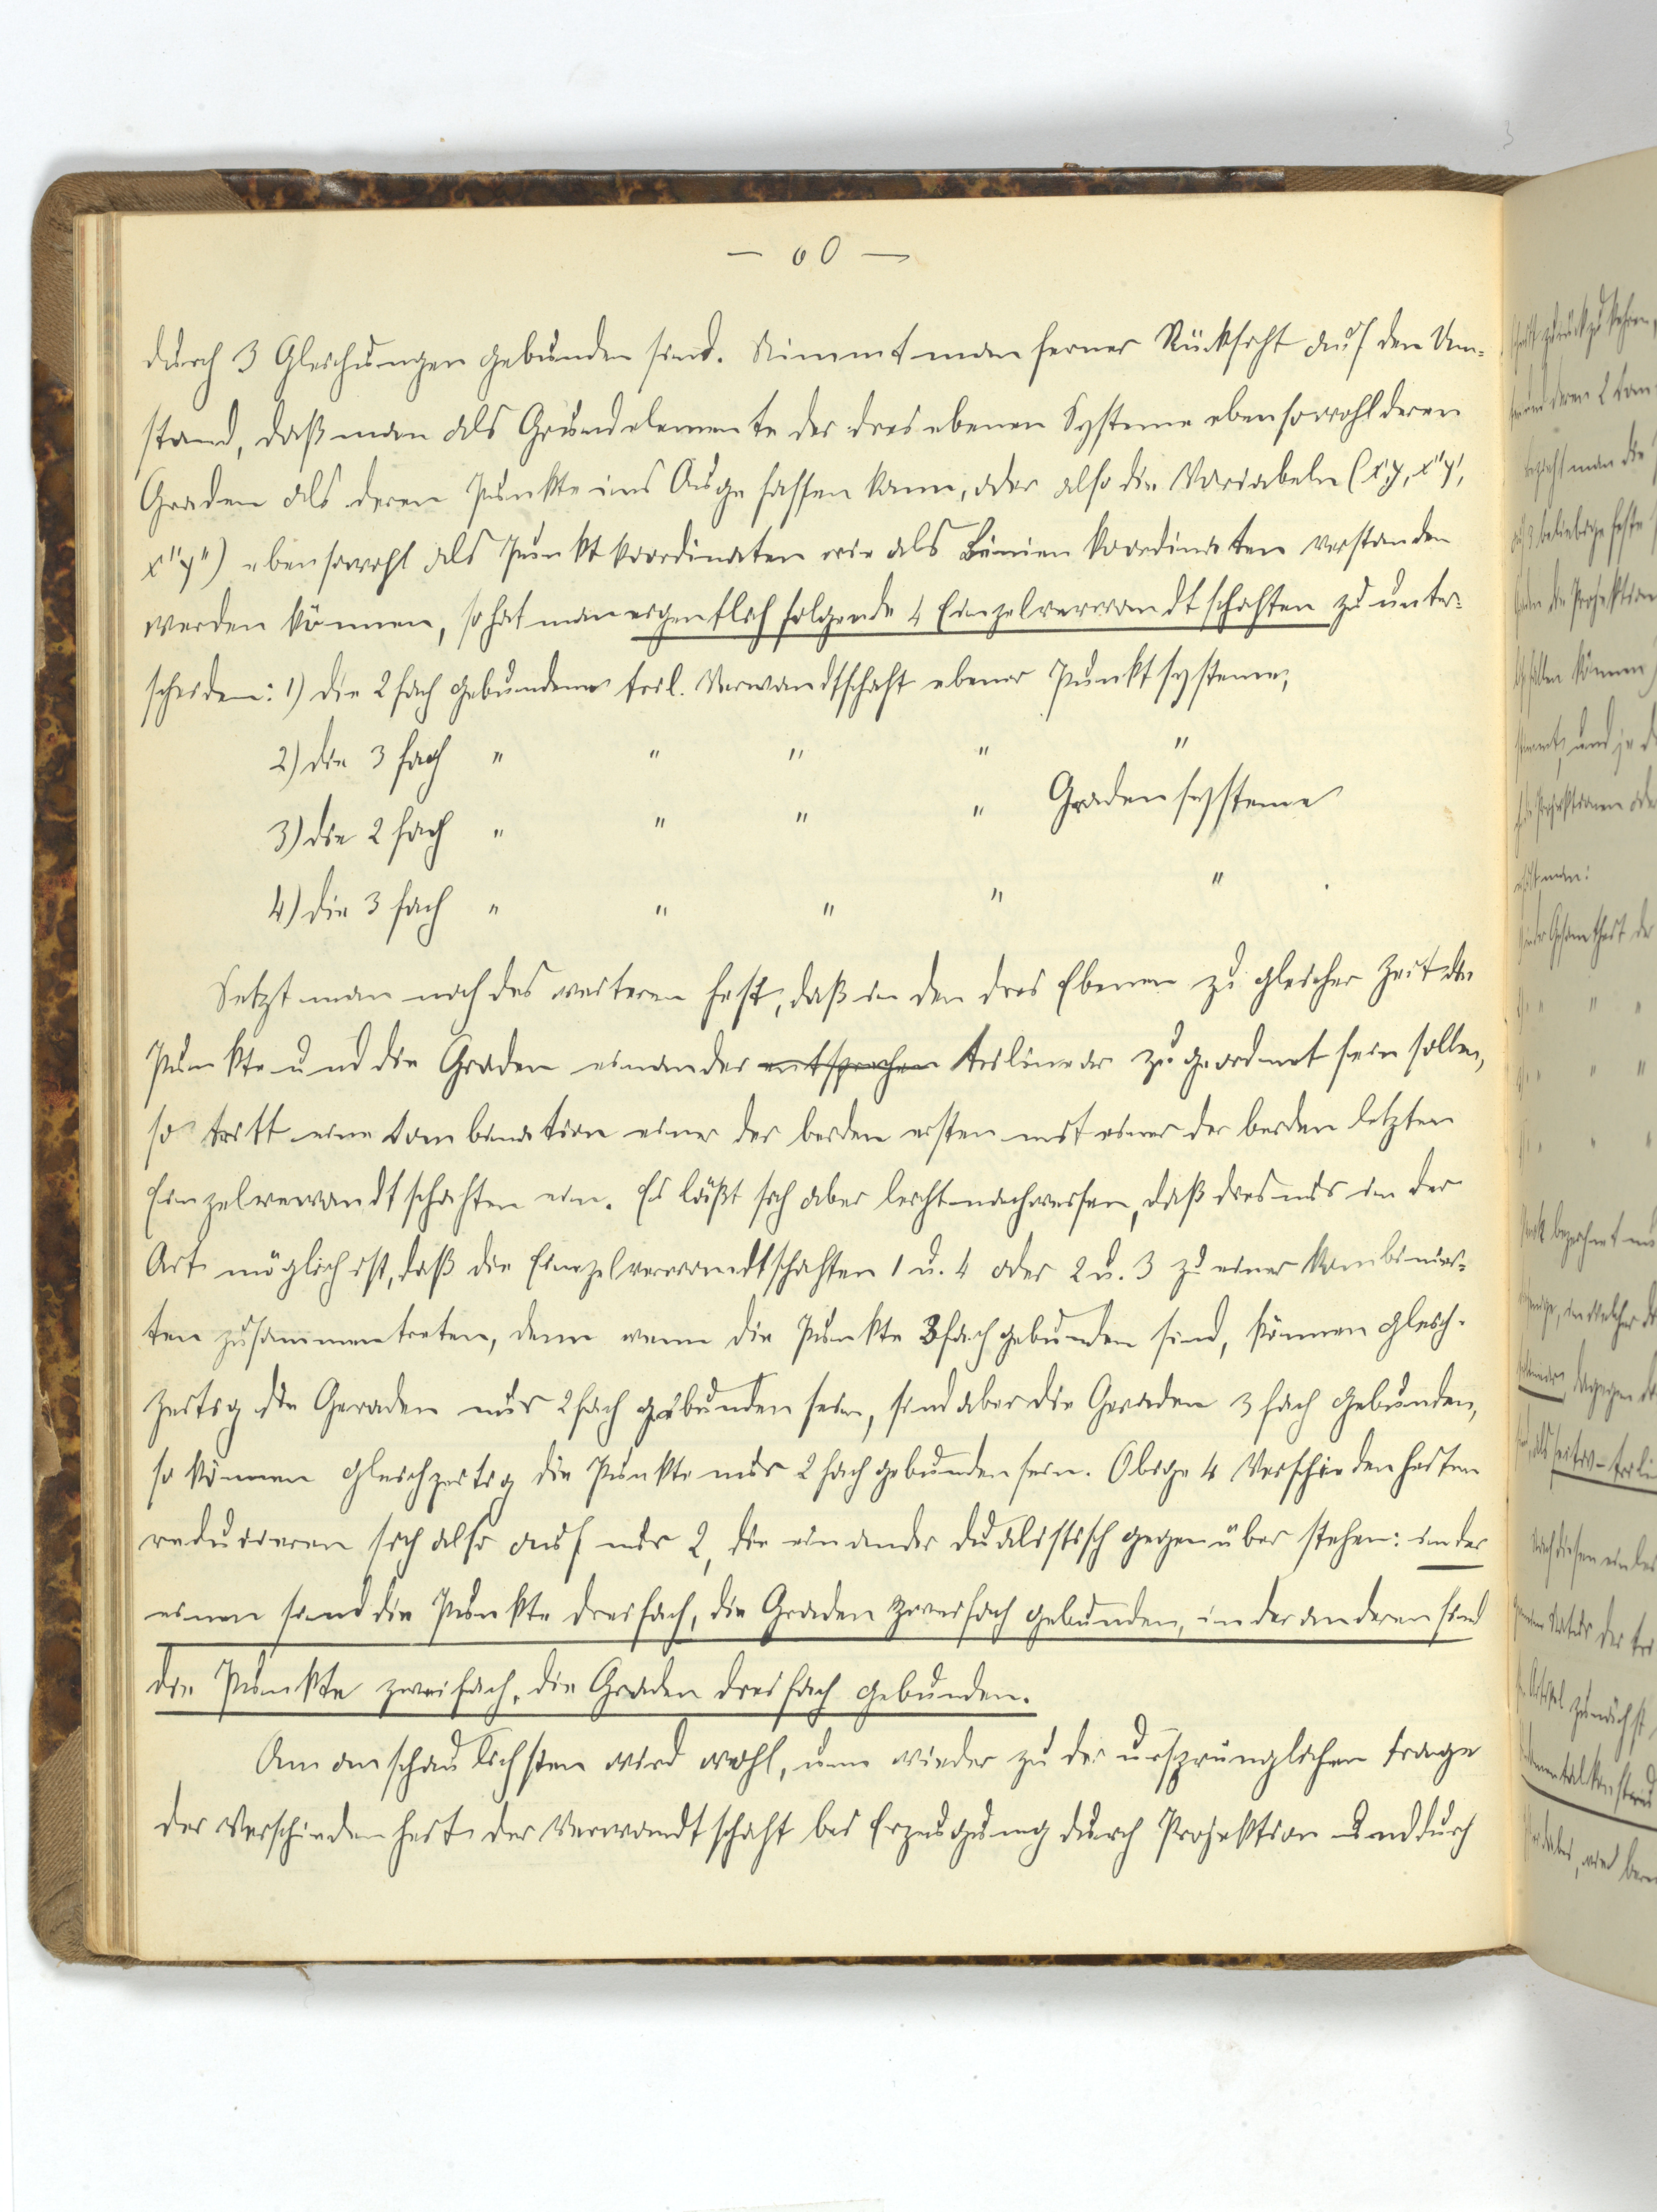 — 60 —
durch 3 Gleichungen gebunden sind. Nimmt man ferner Rücksicht auf den Um-
stand, daß man als Grundelemente der drei ebenen Systeme ebensowohl deren
Graden als deren Punkte ins Auge fassen kann, oder also die Variabeln (x,y, x'y',
x"y") ebensowohl als Punktkoordinaten wie als Linienkoordinaten verstanden
werden können, so hat man eigentlich folgende 4 Einzelverwandtschaften zu unter-
scheiden: 1) die 2fach gebundene tril. Verwandtschaft ebener Punktsysteme;
2) die 3fach " " " " "
3) die 2fach " " " " Gradensysteme
4) die 3fach " " " " " .
Setzt man noch des weiteren fest, daß in den drei Ebenen zu gleicher Zeit die
Punkte und die Graden einander entsprechen trilinear zugeordnet sein sollen,
so tritt eine Combination einer der beiden ersten mit einer der beiden letzten
Einzelverwandtschaften ein. Es läßt sich aber leicht nachweisen, daß dies nur in der
Art möglich ist, daß die Einzelverwandtschaften 1 u. 4 oder 2 u. 3 zu einer kombinier-
ten zusammentreten, denn wenn die Punkte 3fach gebunden sind, können gleich-
zeitig die Geraden nur 2fach gebunden sein, sind aber die Geraden 3fach gebunden,
so können gleichzeitig die Punkte nur 2fach gebunden sein. Obige 4 Verschiedenheiten
reducieren sich also auf nur 2, die einander dualistisch gegenüber stehen: in der
einen sind die Punkte dreifach, die Graden zweifach gebunden, in der anderen sind
die Punkte zweifach, die Graden dreifach gebunden.
Am anschaulichsten wird wohl, um wieder zu der ursprünglichen Frage
der Verschiedenheit der Verwandtschaft bei Erzeugung durch Projektion und durch